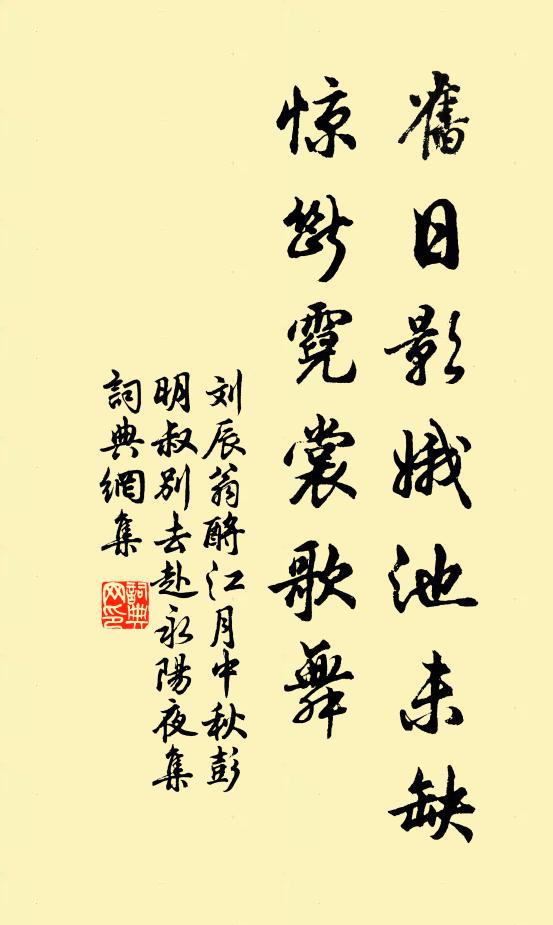 舊日影娥池未缺
惊断霓裳歌舞
刘辰翁酹江月中秋彭
明叔别去赴永陽夜集
詞典網集
詞典
网印